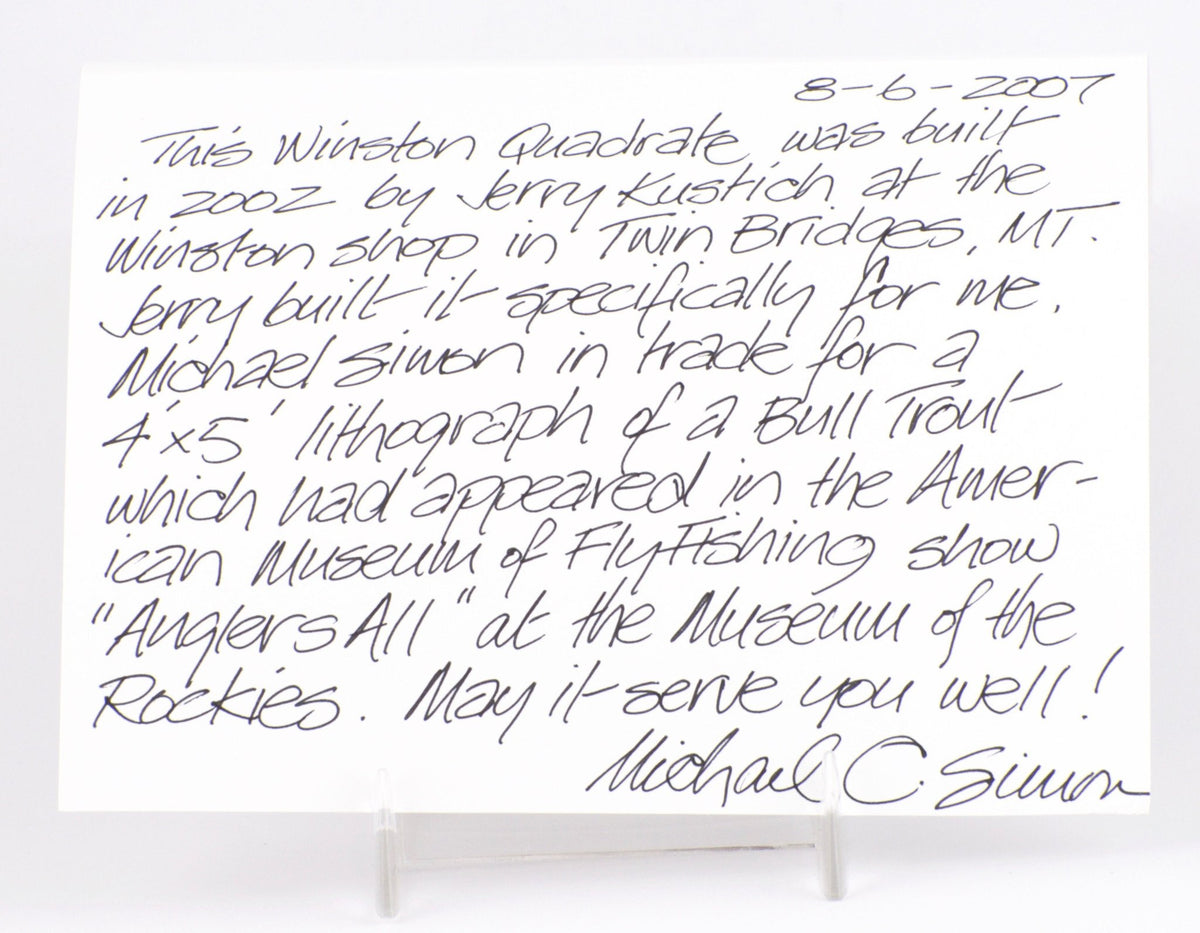 8-6-2007
This Winston Quadrate was built
in 2002 by Jerry Kustich at the
Winston shop in Twin Bridges, MT.
Jerry built it specifically for me,
Michael Simon in trade for a
4'x5' lithograph of a Bull Trout
which had appeared in the Amer-
ican Museum of Fly Fishing show
"Anglers All" at the Museum of the
Rockies. May it serve you well!
Michael C. Simon